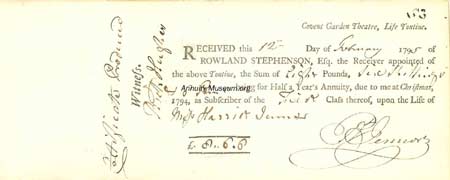 Covent Garden Theatre, Life Tontine.
RECEIVED this 12th Day of February 1795 of
ROWLAND STEPHENSON, Esq. the Receiver appointed of
the above Tontine, the Sum of Eight Pounds, Six Shillings
& Six Pence being for Half a Year's Annuity, due to me at Christmas,
1794, as Subscriber of the Class thereof, upon the Life of
Mrs Harriet
£ 8.. 6.. 8
Certificate Produced
Witness,
Hughes
AnnuityMuseum.org